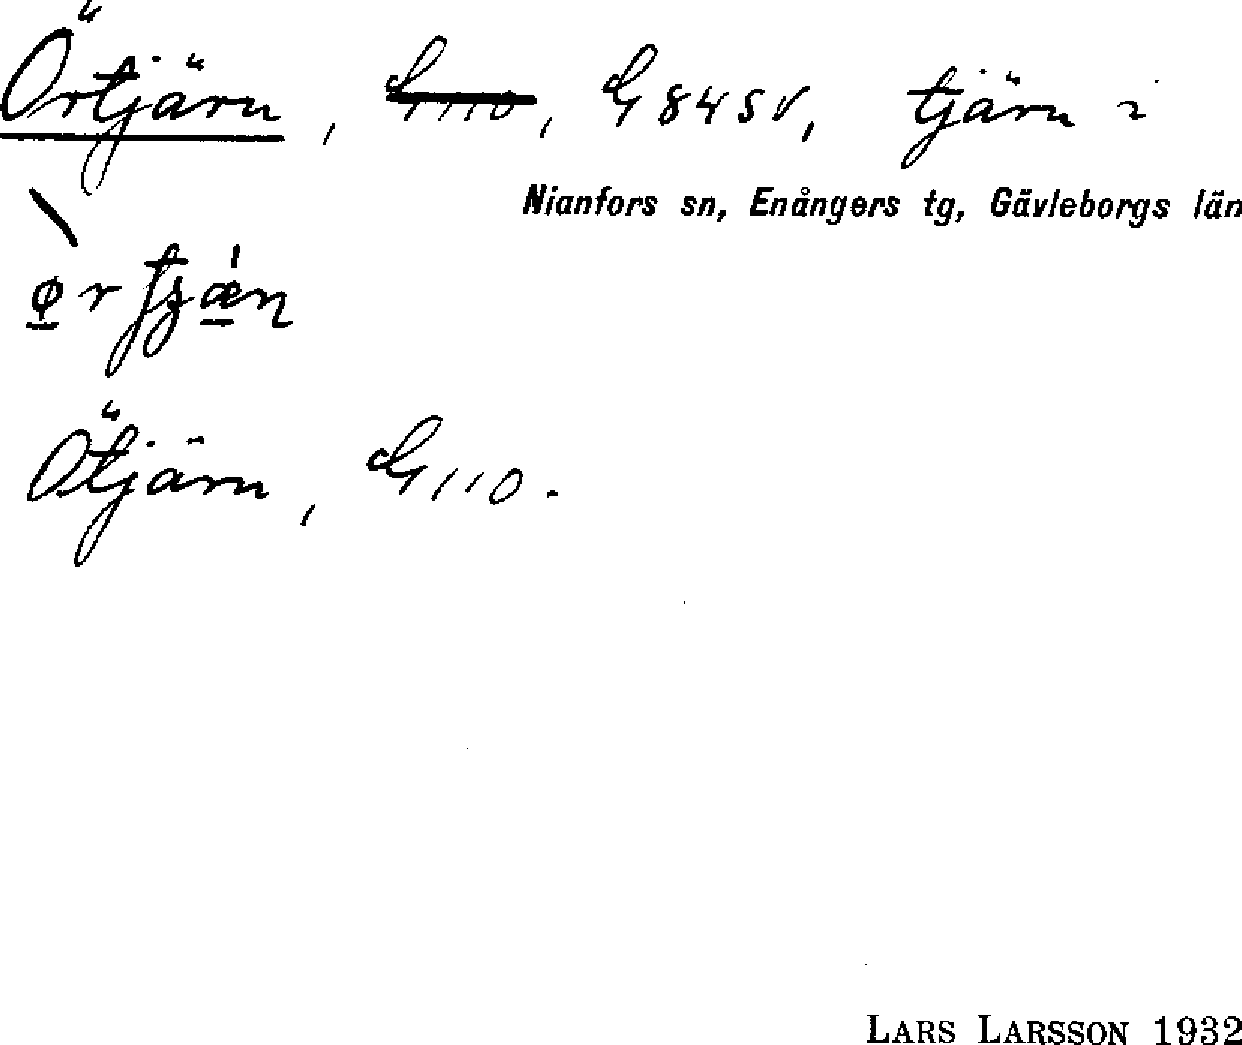 Örtjärn, G110, G84SV, tjärn i
Nianfors sn, Enångers tg, Gävleborgs län
Ötjärn, G110.
LARS LARSSON 1932